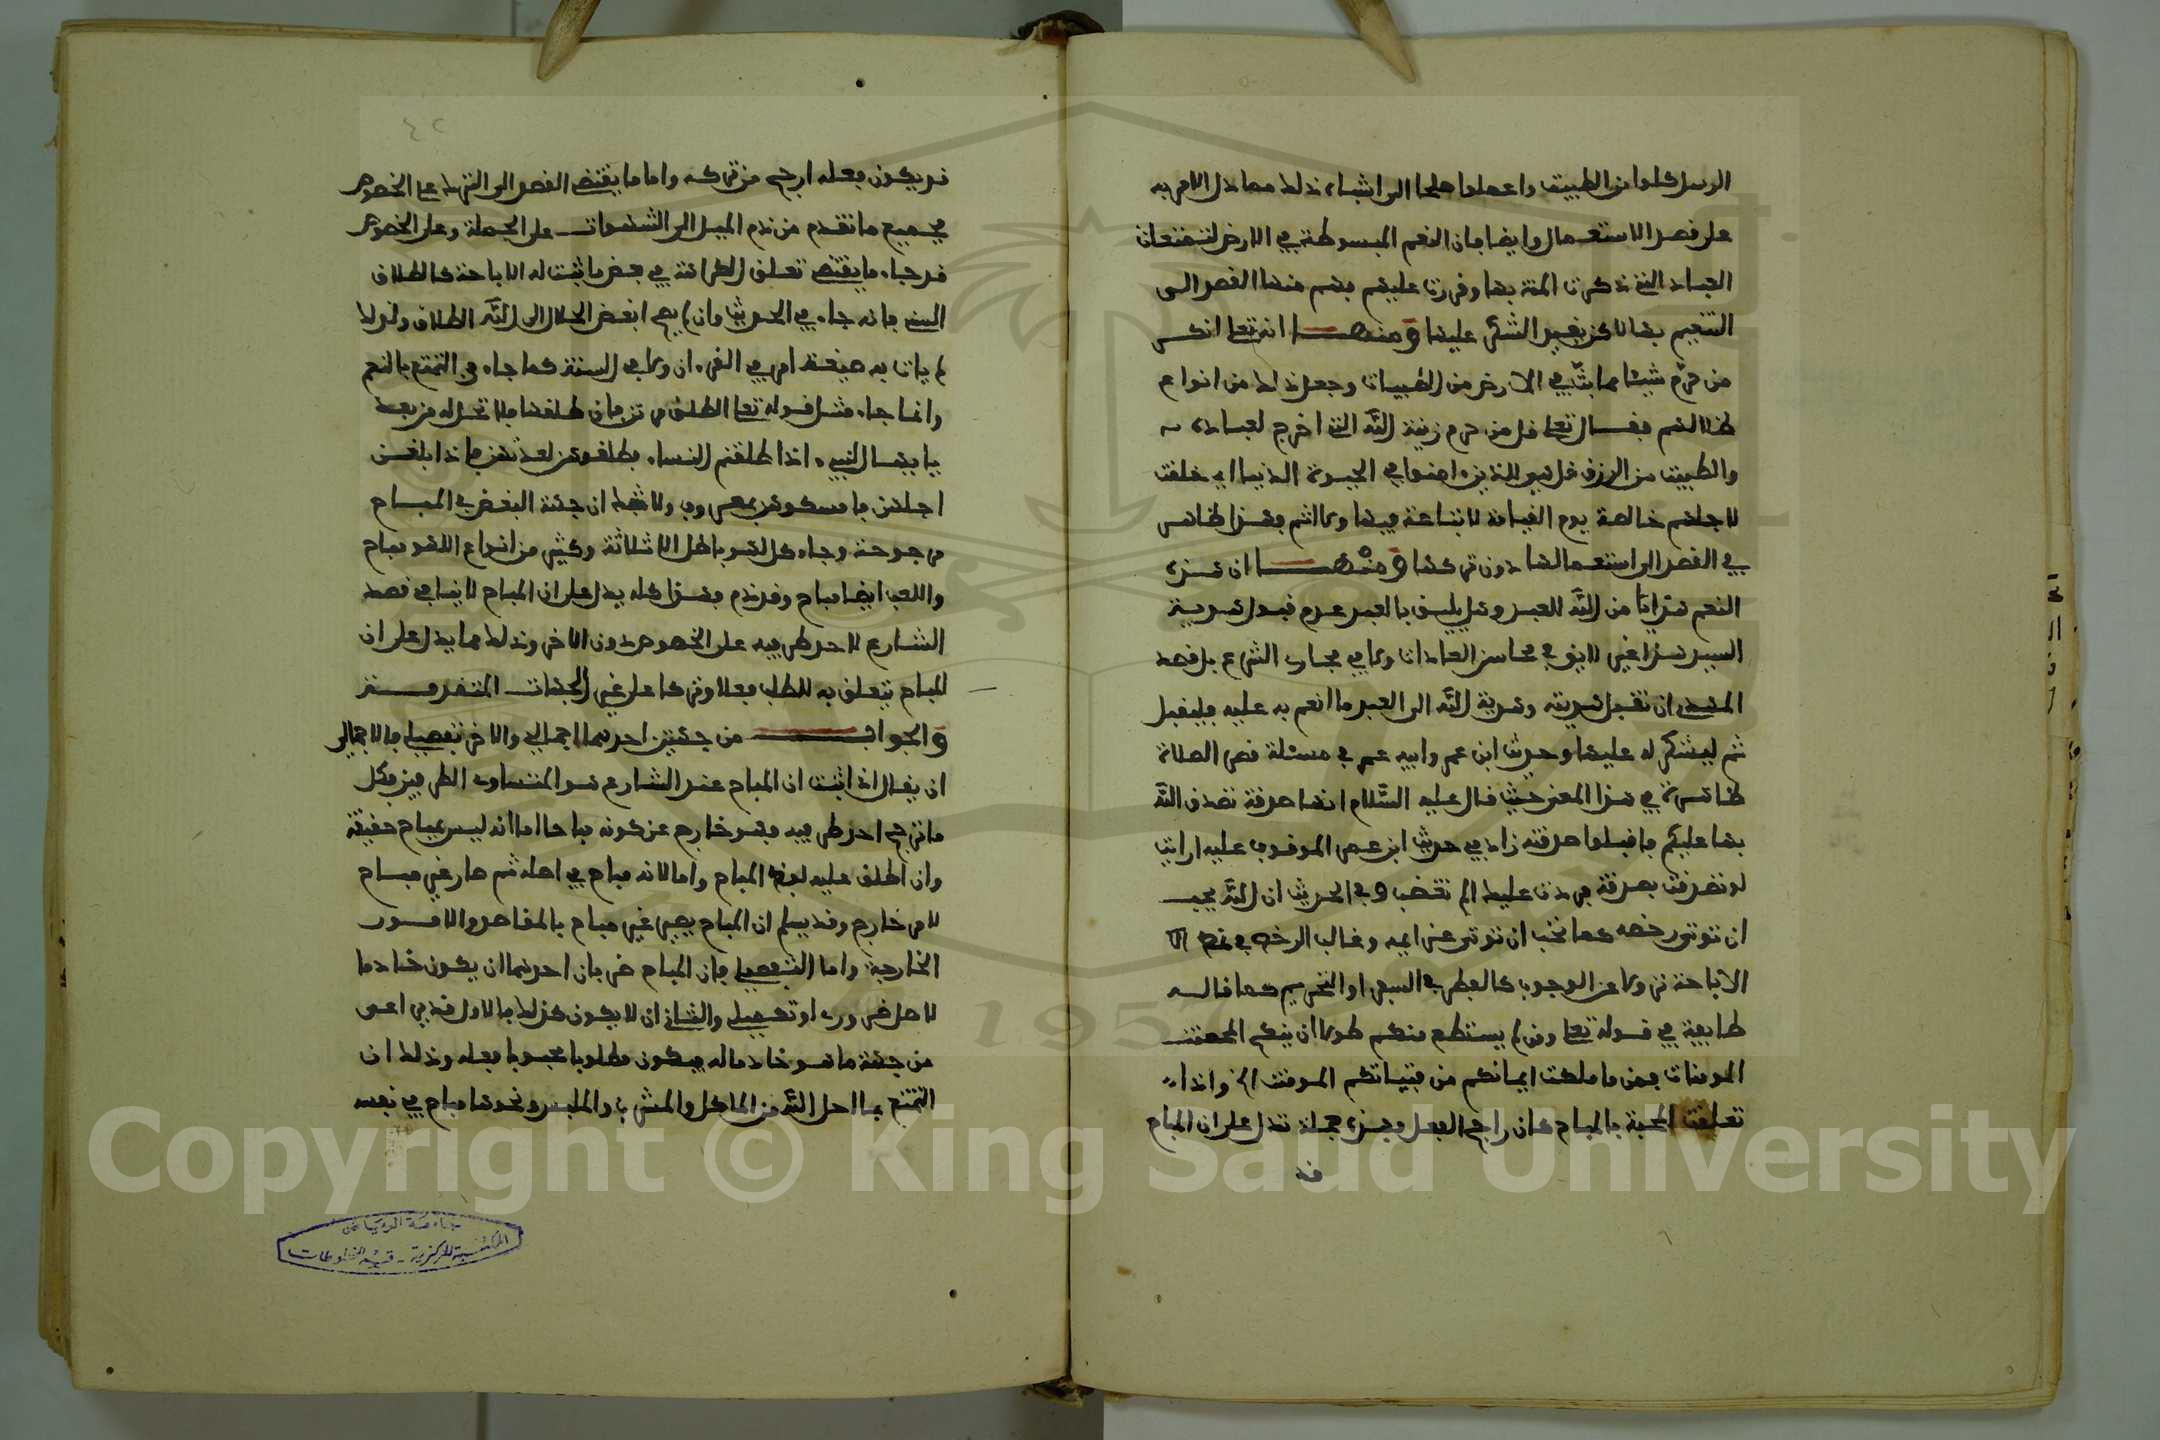 الرسل كلوا من الطيبت واعملوا صلحا الى اشباه ذلك مما دل الامر به
على قصد الاستعمال وايضا فان النعم المبسوطة في الارض لتمتعات
العباد التي ذكرت المنة بها وقررت عليهم فهم منها القصد الى
التنعيم بها لاكن بقيد الشكر عليها ومنهــا انه تعلى انكر
من حرم شيئا مما بث في الارض من الطيبات وجعل ذلك من انواع
ضلالهم فقال تعلى قل من حرم زينة الله التي اخرج لعباده
والطيبت من الرزق قل هي للذين ءامنوا في الحيوة الدنيا اي خلقت
لاجلهم خالصة يوم القيامة لا تباعة فيها ولا اثم فهذا ظاهر
في القصد الى استعمالها دون تركها ومنهــا ان هذه
النعم هدايا من الله للعبد وهل يليق بالعبد عدم قبول هدية
السيد هذا غير لايق في محاسن العادات ولا في مجاري الشرع بل قصد
المهدي ان تقبل هديته وهدية الله الى العبد ما انعم به عليه فليقبل
ثم ليشكر له عليها وحديث ابن عمر وابيه عمر في مسئلة قصر الصلاة
ظاهر في هذا المعنى حيث قال عليه السلام انها صدقة تصدق الله
بها عليكم فاقبلوا صدقته زاد في حديث ابن عمر الموقوف عليه ارايت
لو تصدقت بصدقة فردت عليك الم تغضب وفي الحديث ان الله يحب
ان توتى رخصه كما يحب ان توتى عزايمه وغالب الرخص في نمط
الاباحة نزولا عن الوجوب كالفطر في السفر او التحريم كما قاله
طايفة في قوله تعلى ومن لم يستطع منكم طولا ان ينكح المحصنت
المومنات فمن ما ملكت ايمانكم من فتياتكم المومنت الخ واذا
تعلقت المحبة بالمباح كان راجح الفعل فهذه جملة تدل على ان المباح
قد
٤٢
قد يكون فعله ارجح من تركه واما ما يقتضي القصد الى الترك على الخصوص
فجميع ما تقدم من ذم الميل الى الشهوات على الجملة وعلى الخصوص
قد جاء ما يقتضي تعلق الكراهة في بعض ما ثبت له الاباحة كالطلاق
السني فانه جاء في الحديث وان لم يصح ابغض الحلال الى الله الطلاق ولذلك
لم يات به صيغة امر في القرءان ولا في السنة كما جاء في التمتع بالنعم
وانما جاء مثل قوله تعلى الطلق مرتن فان طلقها فلا تحل له من بعد
يا ايها النبيء اذا طلقتم النساء فطلقوهن لعدتهن فاذا بلغن
اجلهن فامسكوهن بمعروف ولا شك ان جهة البغض في المباح
مرجوحة وجاء كل لهو باطل الا ثلاثة وكثير من انواع اللهو مباح
واللعب ايضا مباح وقد ذم فهذا كله يدل على ان المباح لا ينافي قصد
الشارع لاحد طرفيه على الخصوص دون الاخر وذلك مما يدل على ان
المباح يتعلق به الطلب فعلا وتركا على غير الجهات المتقدمــة
والجوابــ من جهتين احدهما اجمالي والاخر تفصيلي فالاجمالي
ان يقال اذا ثبت ان المباح عند الشارع هو المتساوي الطرفين فكل
ما ترجح احد طرفيه فهو خارج عن كونه مباحا اما انه ليس بمباح حقيقة
وان اطلق عليه لفظ المباح واما لانه مباح في اصله ثم صار غير مباح
لامر خارج وقد يسلم ان المباح يصير غير مباح بالمقاصد والامور
الخارجية واما التفصيلي فان المباح ضربان احدهما ان يكون خادما
لاصل ضروري او تكميلي والثاني ان لا يكون كذلك فالاول قد يراعى
من جهة ما هو خادم له فيكون مطلوبا محبوبا فعله وذلك ان
التمتع بما احل الله من الماكل والمشرب والملبس ونحوها مباح في نفسه
جامعة الرياض
المكتبة المركزية - قسم المخطوطات
1957
Copyright © King Saud University